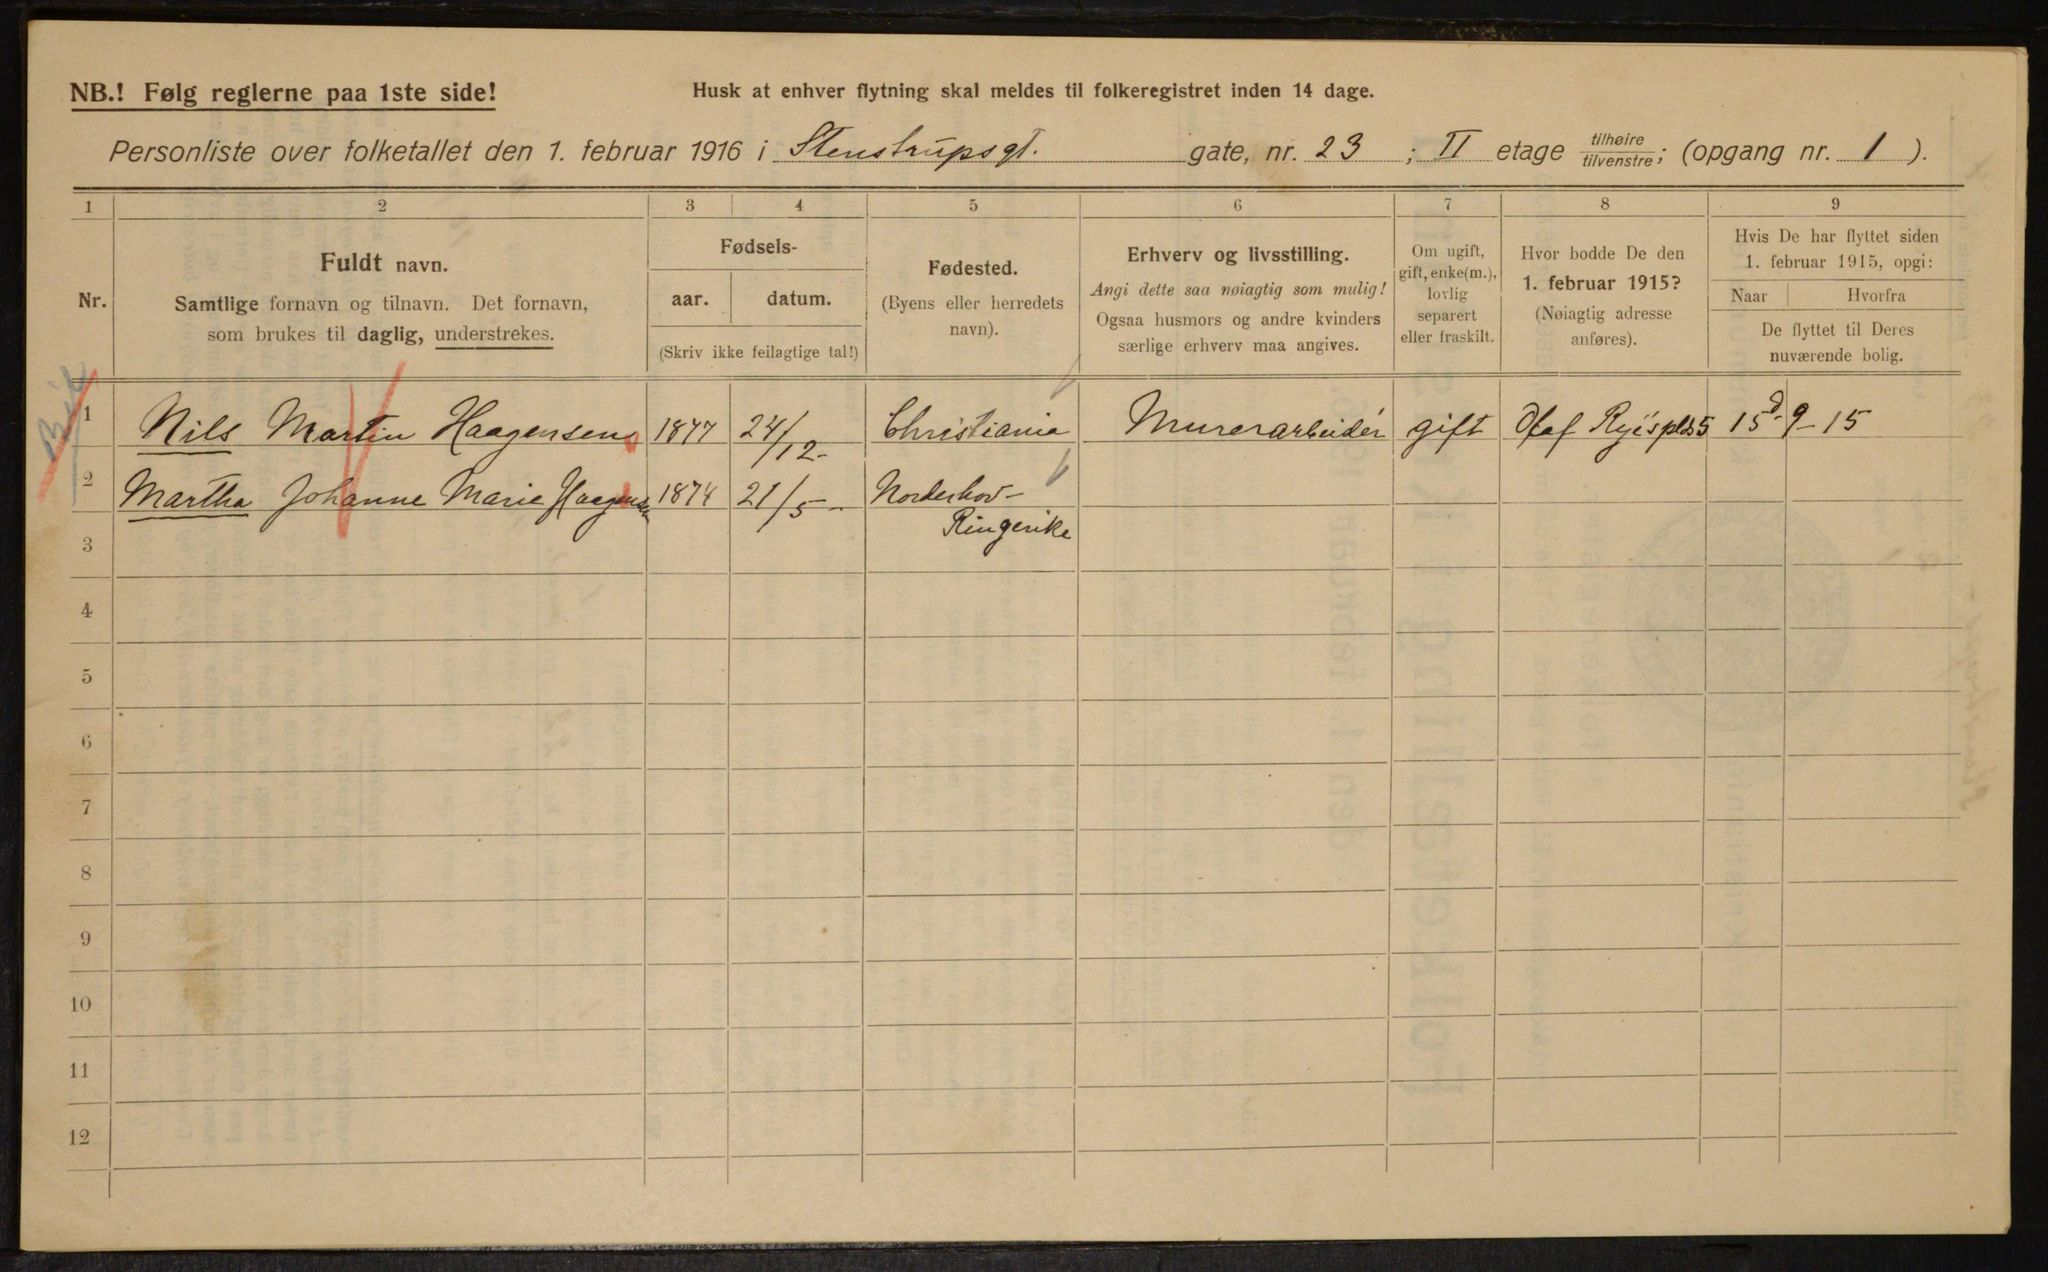 NB.! Følg reglerne paa 1ste side!
Husk at enhver flytning skal meldes til folkeregistret inden 14 dage.
Personliste over folketallet den 1. februar 1916 i Stenstrupsgt. gate, nr. 23 ; II etage tilhøire tilvenstre ; (opgang nr. 1 ).
1 2 3 4 5 6 7 8 9
Nr.
Fuldt navn.
Samtlige fornavn og tilnavn. Det fornavn,
som brukes til daglig, understrekes.
Fødsels-
aar. datum.
(Skriv ikke feilagtige tal!)
Fødested.
(Byens eller herredets
navn).
Erhverv og livsstilling.
Angi dette saa nøiagtig som mulig!
Ogsaa husmors og andre kvinders
særlige erhverv maa angives.
Om ugift,
gift, enke(m.),
lovlig
separert
eller fraskilt.
Hvor bodde De den
1. februar 1915?
(Nøiagtig adresse
anføres).
Hvis De har flyttet siden
1. februar 1915, opgi:
Naar Hvorfra
De flyttet til Deres
nuværende bolig.
1 Nils Martin Haagensen 1877 24/12- Christiania Murerarbeider gift Olaf Ryes pl. 5 15 d- 9 - 15
2 Martha Johanne Marie Haagensen 1874 21/5- Norderhov-
Ringerike
3
4
5
6
7
8
9
10
11
12